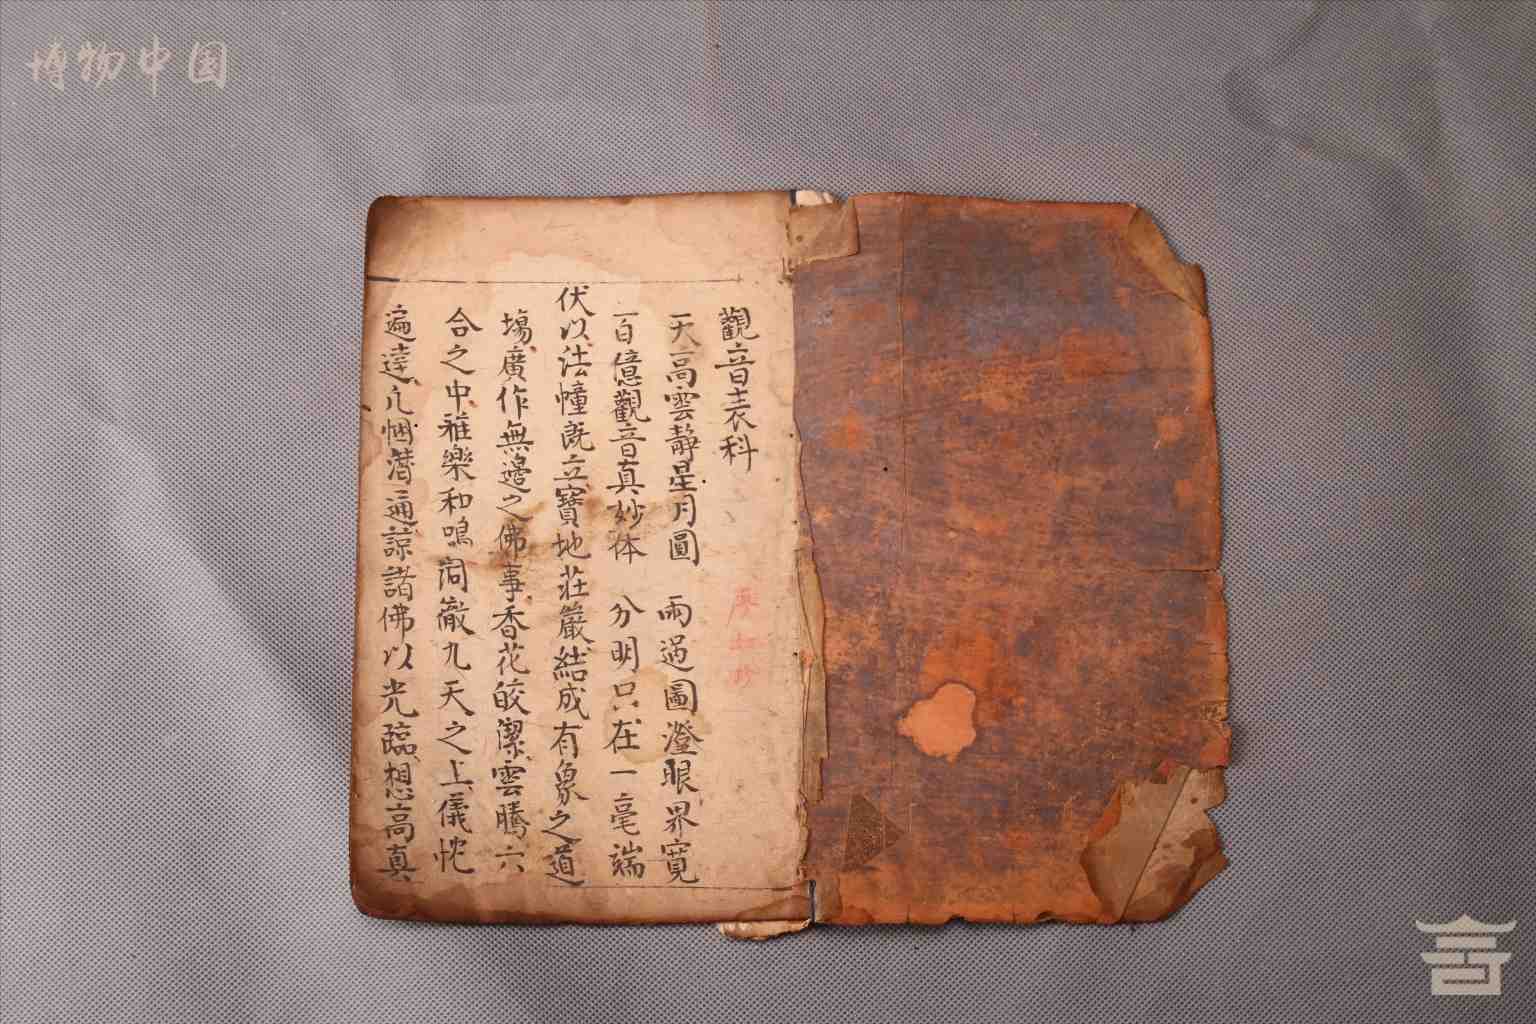 博物中国
觀音表科
天高雲静星月圓 雨過圖澄眼界寬
百億觀音真妙体 分明只在一毫端
伏以法幢既立寶地莊嚴結成有象之道
場廣作無邊之佛事香花皎潔雲騰六
合之中雅樂和鳴洞徹九天之上儀忱
遍達凡悃潛通諒諸佛以光臨想高真